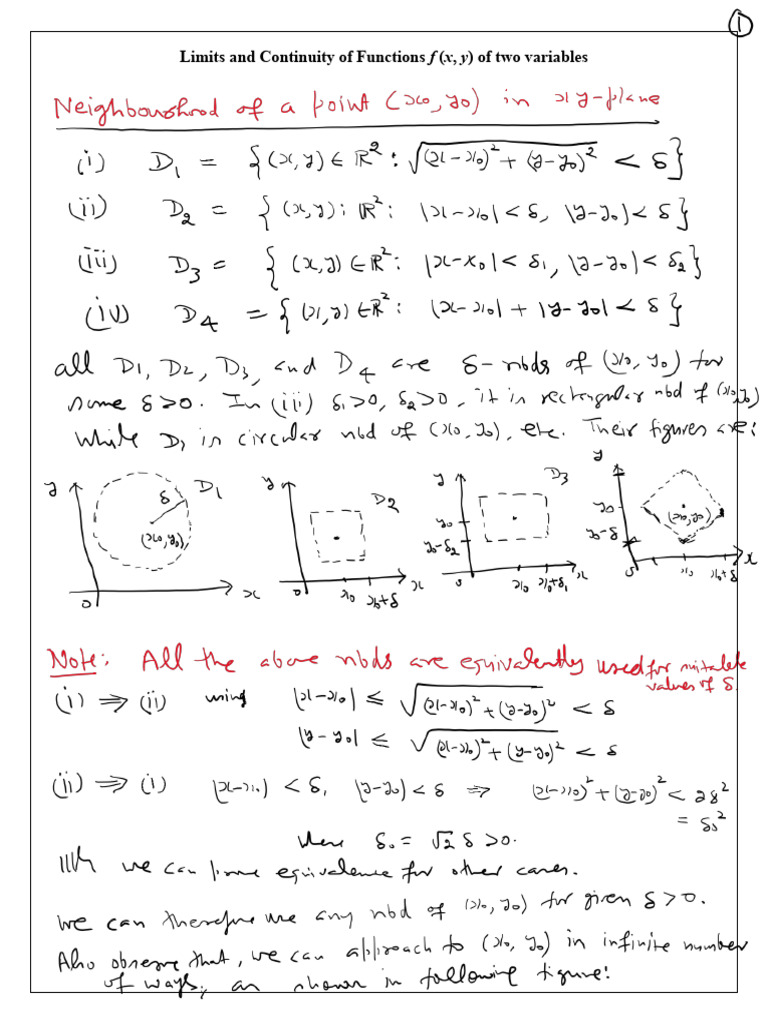 ①
Limits and Continuity of Functions f (x, y) of two variables
Neighbourhood of a point (x₀, y₀) in xy-plane
(i) D₁ = {(x, y) ∈ ℝ² : √((x-x₀)² + (y-y₀)²) < δ}
(ii) D₂ = {(x, y) : ℝ² : |x-x₀| < δ, |y-y₀| < δ}
(iii) D₃ = {(x, y) ∈ ℝ² : |x-x₀| < δ₁, |y-y₀| < δ₂}
(iv) D₄ = {(x, y) ∈ ℝ² : |x-x₀| + |y-y₀| < δ}
all D₁, D₂, D₃, and D₄ are δ-nbds of (x₀, y₀) for
some δ>0. In (iii) δ₁>0, δ₂>0, it is rectangular nbd of (x₀, y₀)
while D₁ is circular nbd of (x₀, y₀), etc. Their figures are:
y δ D₁ (x₀, y₀) 0 x
y D₂ 0 x₀ x₀+δ x
y D₃ y₀ y₀-δ₂ 0 x₀ x₀+δ₁ x
y y₀ (x₀, y₀) y₀-δ 0 x₀ x₀+δ x
Note: All the above nbds are equivalently used for suitable
values of δ.
(i) ⇒ (ii) using |x-x₀| ≤ √((x-x₀)² + (y-y₀)²) < δ
|y-y₀| ≤ √((x-x₀)² + (y-y₀)²) < δ
(ii) ⇒ (i) |x-x₀| < δ, |y-y₀| < δ ⇒ (x-x₀)² + (y-y₀)² < 2δ²
= δ₀²
where δ₀ = √2 δ > 0.
|||ly we can prove equivalence for other cases.
We can therefore use any nbd of (x₀, y₀) for given δ > 0.
Also observe that, we can approach to (x₀, y₀) in infinite number
of ways, as shown in following figure: